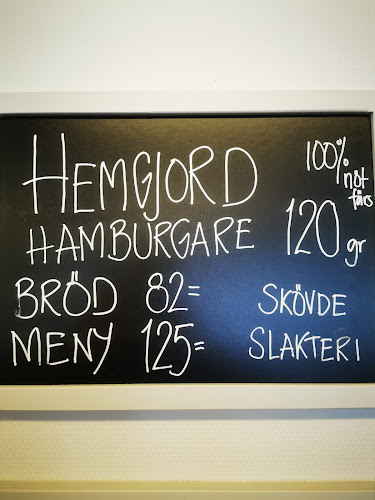 HEMGJORD
100%
nöt
färs
HAMBURGARE
120 gr
BRÖD 82=
SKÖVDE
MENY 125=
SLAKTERI